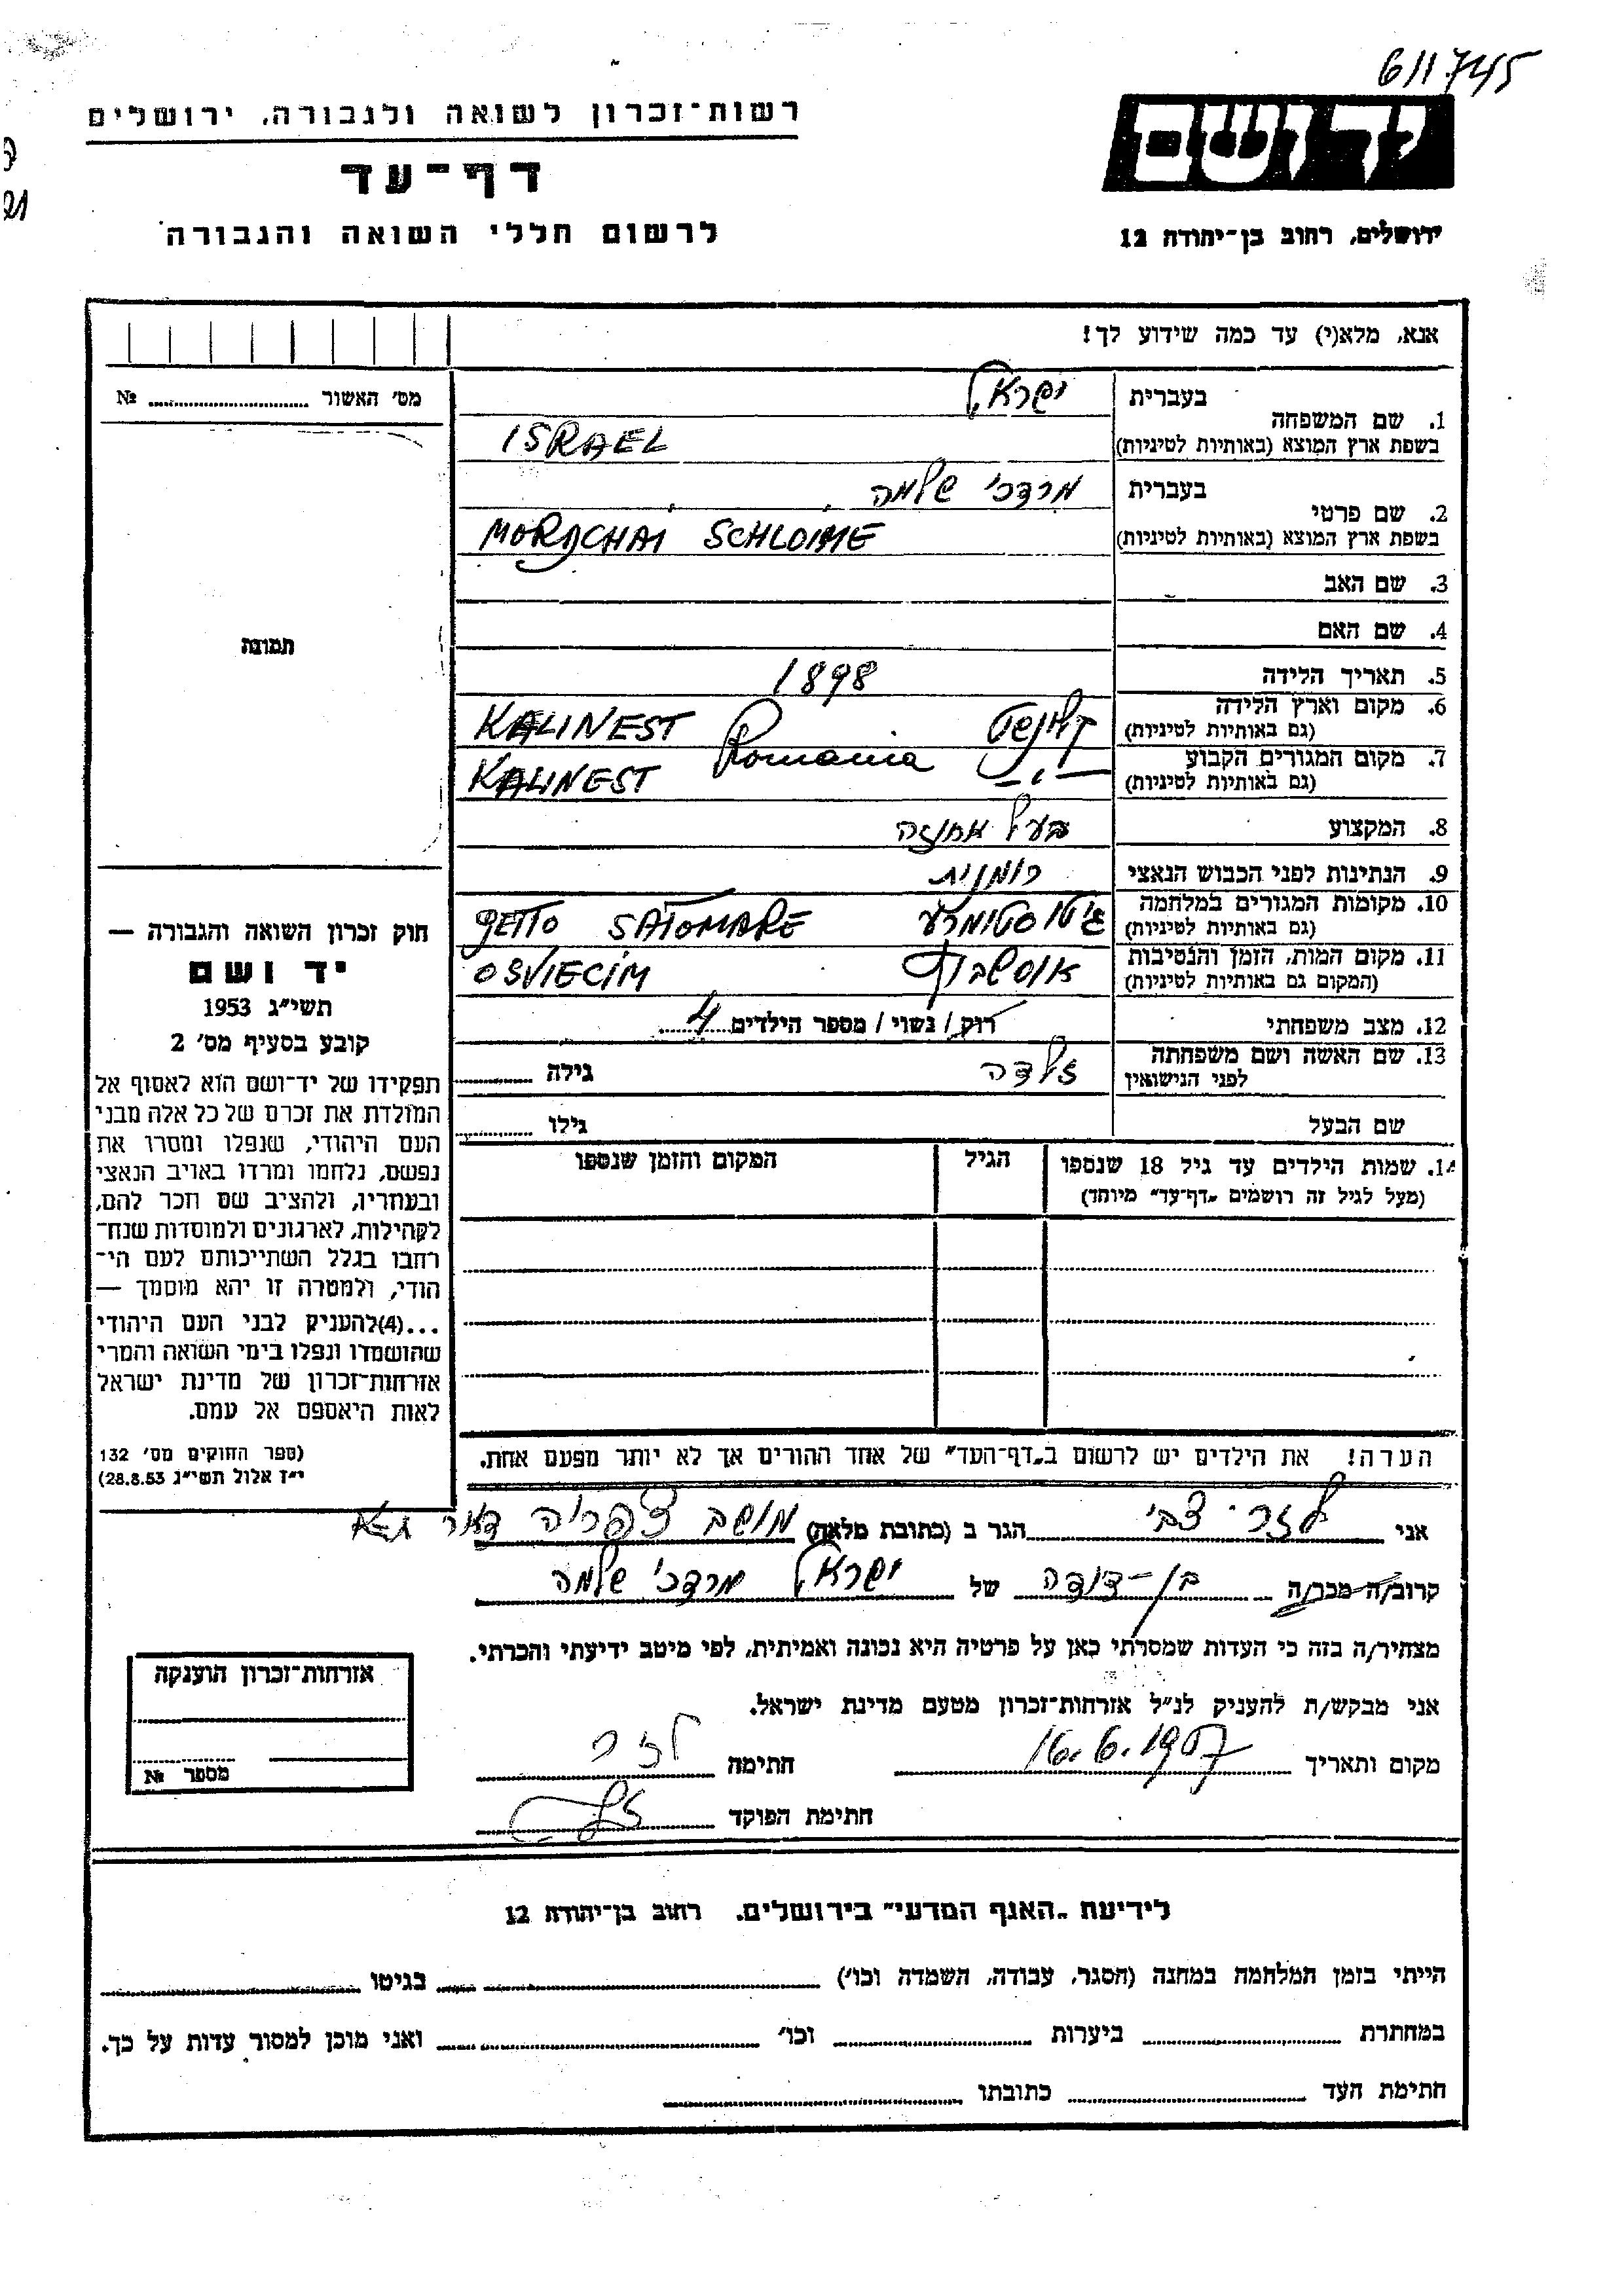 611745
רשות-זכרון לשואה ולגבורה, ירושלים
דף-עד
לרשום חללי השואה והגבורה
יד ושם
ירושלים, רחוב בן-יהודה 12
אנא, מלא(י) עד כמה שידוע לך!
מס' האשור № ........
תמונה
חוק זכרון השואה והגבורה —
יד ושם
תשי"ג 1953
קובע בסעיף מס' 2
תפקידו של יד-ושם הוא לאסוף אל
המולדת את זכרם של כל אלה מבני
העם היהודי, שנפלו ומסרו את
נפשם, נלחמו ומרדו באויב הנאצי
ובעוזריו, ולהציב שם וזכר להם,
לקהילות, לארגונים ולמוסדות שנח-
רבו בגלל השתייכותם לעם הי-
הודי, ולמטרה זו יהא מוסמך —
...(4) להעניק לבני העם היהודי
שהושמדו ונפלו בימי השואה והמרי
אזרחות-זכרון של מדינת ישראל
לאות היאספם אל עמם.
(ספר החוקים מס' 132
י"ז אלול תשי"ג 28.8.53)
בעברית ישראל
1. שם המשפחה
בשפת ארץ המוצא (באותיות לטיניות) ISRAEL
בעברית מרדכי שלמה
2. שם פרטי
בשפת ארץ המוצא (באותיות לטיניות) MORDCHAI SCHLOIME
3. שם האב
4. שם האם
5. תאריך הלידה 1898
6. מקום וארץ הלידה
(גם באותיות לטיניות) KALINEST Romania
7. מקום המגורים הקבוע
(גם באותיות לטיניות) KALINEST — " —
8. המקצוע בעל אחוזה
9. הנתינות לפני הכבוש הנאצי רומנית
10. מקומות המגורים במלחמה
(גם באותיות לטיניות) גיטו סטימרע GETTO SATOMARE
11. מקום המות, הזמן והנסיבות
(המקום גם באותיות לטיניות) אוסשבוץ OSVIECIM
12. מצב משפחתי רוק / נשוי / מספר הילדים 4
13. שם האשה ושם משפחתה
לפני הנישואין זלדה גילה ........
שם הבעל גילו ........
14. שמות הילדים עד גיל 18 שנספו הגיל המקום והזמן שנספו
(מעל לגיל זה רושמים "דף-עד" מיוחד)
הערה! את הילדים יש לרשום ב"דף-העד" של אחד ההורים אך לא יותר מפעם אחת.
אני לזר צבי הגר ב (כתובת מלאה) מושב צפריה דאר נ-א
קרוב/ה מכר/ה בן-דודה של ישראל מרדכי שלמה
מצהיר/ה בזה כי העדות שמסרתי כאן על פרטיה היא נכונה ואמיתית, לפי מיטב ידיעתי והכרתי.
אני מבקש/ת להעניק לנ"ל אזרחות-זכרון מטעם מדינת ישראל.
מקום ותאריך 16.6.1957 חתימה לזר
חתימת הפוקד
אזרחות-זכרון הוענקה
מספר №
לידיעת "האגף המדעי" בירושלים, רחוב בן-יהודה 12
הייתי בזמן המלחמה במחנה (הסגר, עבודה, השמדה וכו') ........ בגיטו ........
במחתרת ........ ביערות ........ וכו' ........ ואני מוכן למסור עדות על כך.
חתימת העד ........ כתובתו ........